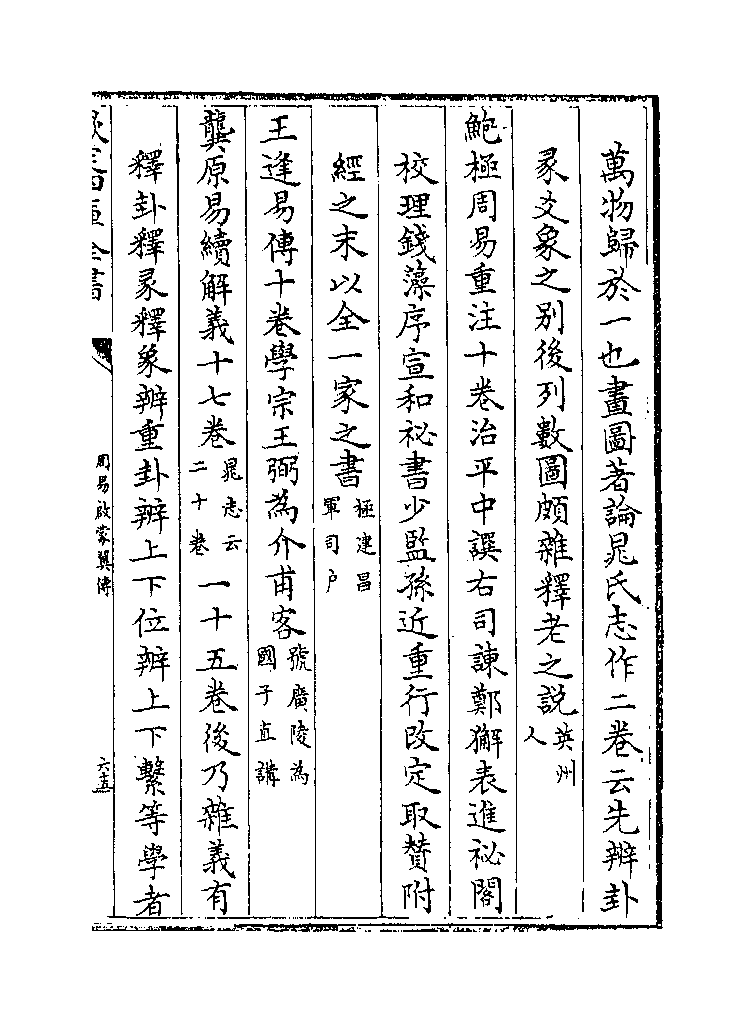 萬物歸於一也畫圖著論晁氏志作二卷云先辨卦
彖爻象之别後列數圖頗雜釋老之說英州人
鮑極周易重注十卷治平中譔右司諫鄭獬表進祕閣
校理錢藻序宣和祕書少監孫近重行改定取贊附
經之末以全一家之書極建昌軍司户
王逢易傳十卷學宗王弼為介甫客號廣陵為國子直講
龔原易續解義十七卷晁志云二十卷一十五卷後乃雜義有
釋卦釋彖釋象辨重卦辨上下位辨上下繫等學者
欽定四庫全書
周易啟蒙翼傳
六十五